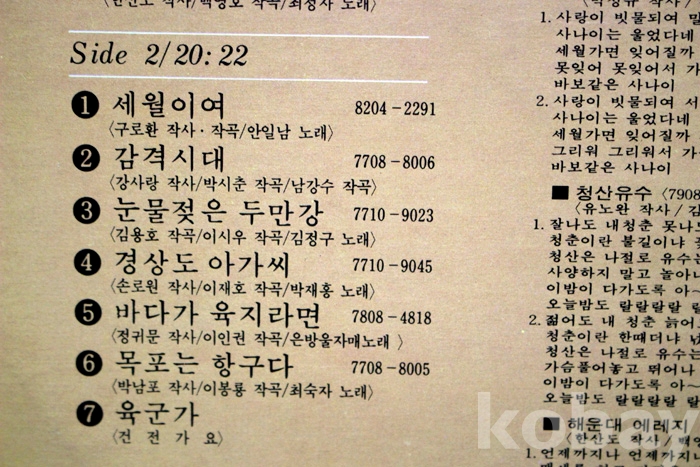 Side 2/20:22
❶ 세월이여 8204-2291
〈구로환 작사·작곡/안일남 노래〉
❷ 감격시대 7708-8006
〈강사랑 작사/박시춘 작곡/남강수 작곡〉
❸ 눈물젖은 두만강 7710-9023
〈김용호 작사/이시우 작곡/김정구 노래〉
❹ 경상도 아가씨 7710-9045
〈손로원 작사/이재호 작곡/박재홍 노래〉
❺ 바다가 육지라면 7808-4818
〈정귀문 작사/이인권 작곡/은방울자매노래 〉
❻ 목포는 항구다 7708-8005
〈박남포 작사/이봉룡 작곡/최숙자 노래〉
❼ 육군가
〈건 전 가 요〉
1. 사랑이 빗물되여
사나이는 울었다네
세월가면 잊어질까
못잊어 못잊어서
바보같은 사나이
2. 사랑이 빗물되여
사나이는 울었다네
세월가면 잊어질까
그리워 그리워서
바보같은 사나이
■ 청산유수 〈7908
〈유노완 작사/
1. 잘나도 내청춘
청춘이란 불길이냐
청산은 나절로 유수는
사양하지 말고
이밤이 다가도록 아~
오늘밤도 랄랄랄랄
2. 젊어도 내 청춘
청춘이란 한때더냐
청산은 나절로 유수는
가슴풀어놓고 뛰어나
이밤이 다가도록 아~
오늘밤도 랄랄랄랄
■ 해운대 에레지
〈한산도 작사/
1. 언제까지나 언제까지
kobay